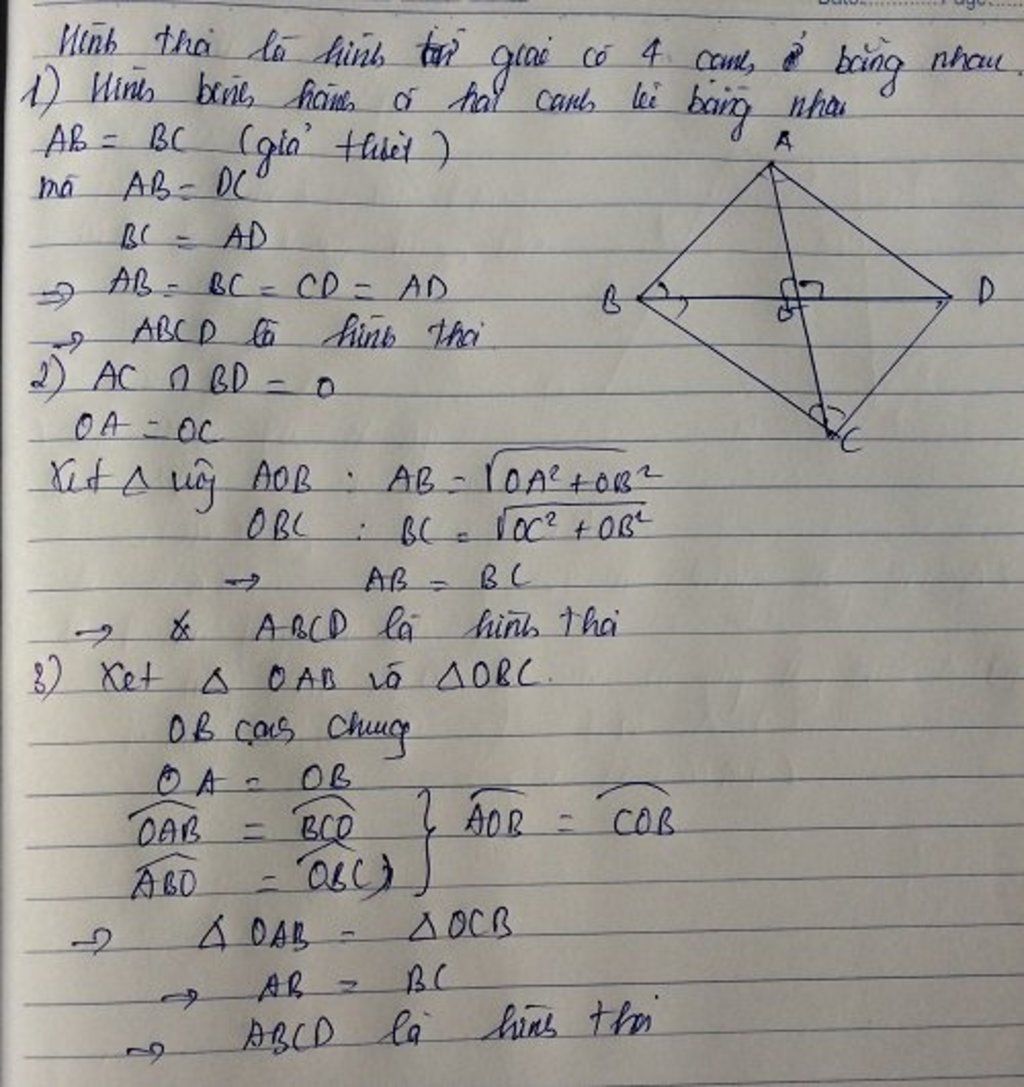 Hình thoi là hình tứ giác có 4 cạnh bằng nhau.
1) Hình bình hành có hai cạnh kề bằng nhau
AB = BC (giả thiết)
mà AB = DC
BC = AD
⇒ AB = BC = CD = AD
→ ABCD là hình thoi
2) AC ∩ BD = O
OA = OC
Xét Δ vuông AOB : AB = √OA² + OB²
OBC : BC = √OC² + OB²
→ AB = BC
→ ABCD là hình thoi
3) Xét Δ OAB và ΔOBC.
OB cạnh chung
OA = OB
OAB = BCO } AOB = COB
ABO = OBC
→ Δ OAB = ΔOCB
→ AB = BC
→ ABCD là hình thoi
A
B
D
O
C